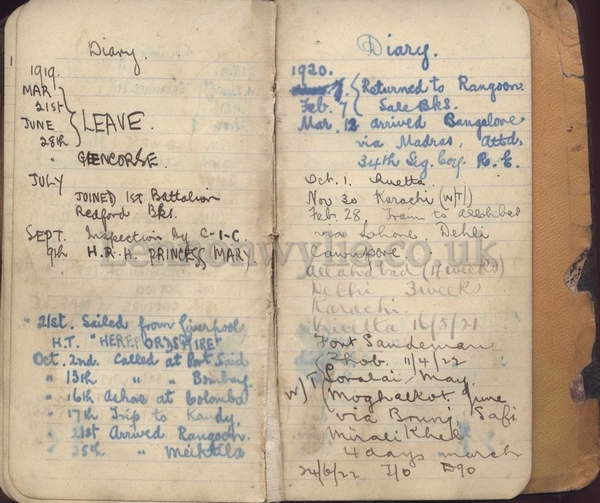 Diary.
1919.
MAR
21st
JUNE
28th
LEAVE.
" GLENCORSE.
JULY
JOINED 1st Battalion
Redford Bks.
SEPT. Inspection by C-I-C
9th H.R.H. PRINCESS MARY
" 21st. Sailed from Liverpool
H.T. "HEREFORDSHIRE"
Oct. 2nd. Called at Port Said
" 13th " " Bombay.
" 16th Ashore at Colombo
" 17th Trip to Kandy.
" 21st Arrived Rangoon.
" 25th " Meiktila
Diary.
1920.
Feb. 7 Returned to Rangoon.
Sale Bks.
Mar. 12 arrived Bangalore
via Madras, Attd.
34th Sig. Coy. R.E.
Oct. 1. Quetta.
Nov 30 Karachi (W/T)
Feb. 28 Train to Allahbad
via Lahore, Dehli,
Cawnpore.
Allahabad (17 weeks)
Delhi 3 weeks
Karachi.
Quetta 16/5/21
Fort Sandeman
Zhob. 11/4/22
W/T Loralai, May.
Moghalkot June
via Brunj, Safi
Mirali Khel
4 days march
24/6/22 I/O D90
lennonwylie.co.uk